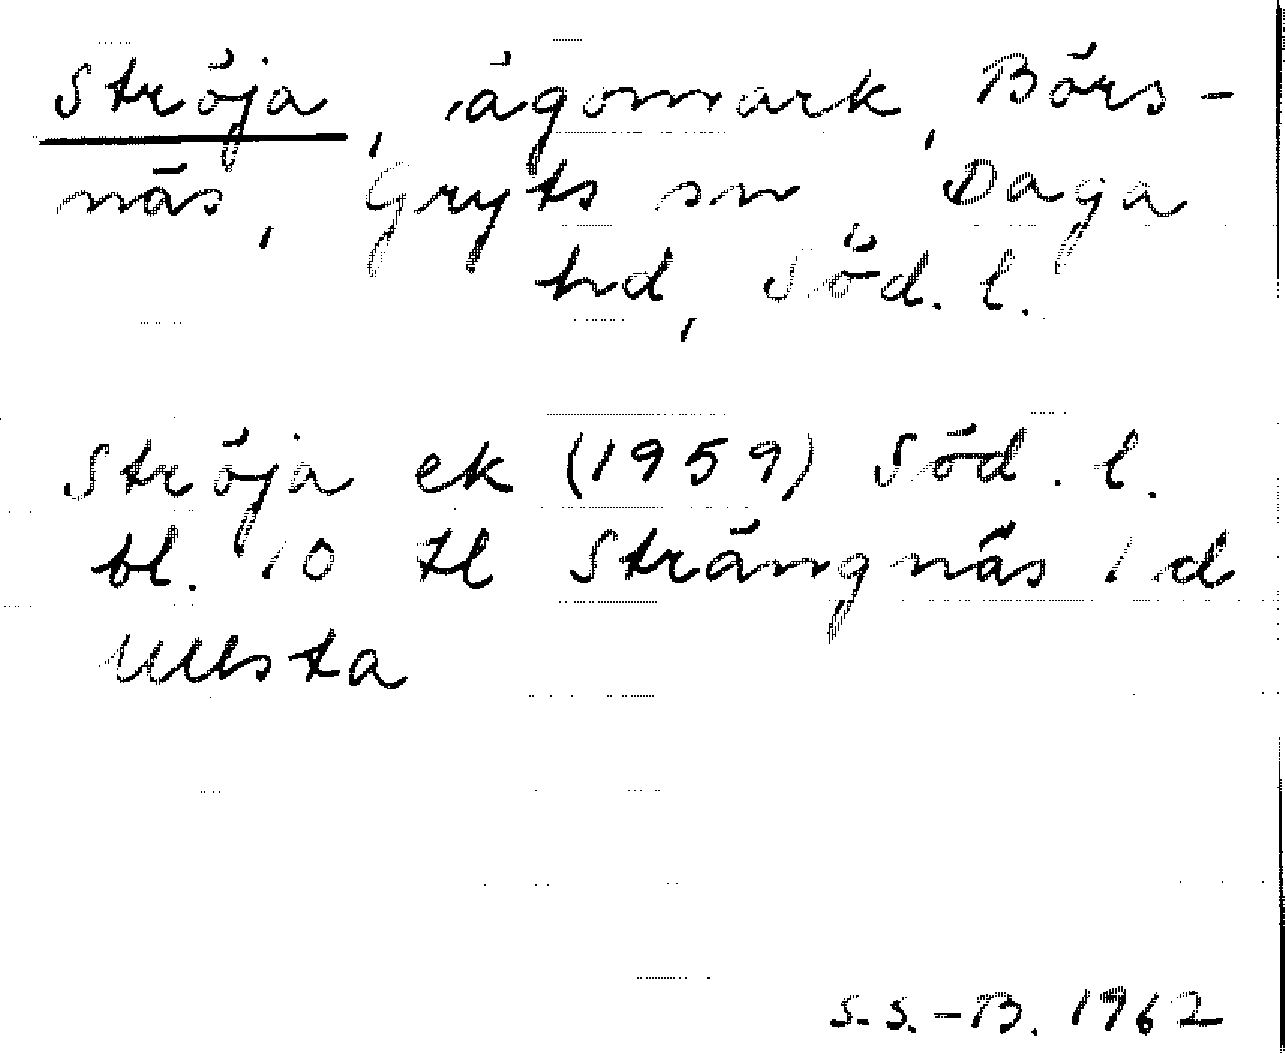 Ströja, ägomark, Börs-
näs, Gryts sn, Daga
hd, Söd. l.
Ströja ek (1959) Söd. l.
bl. 10 tl Strängnäs 1 d
Ullsta
S.S.-B. 1962